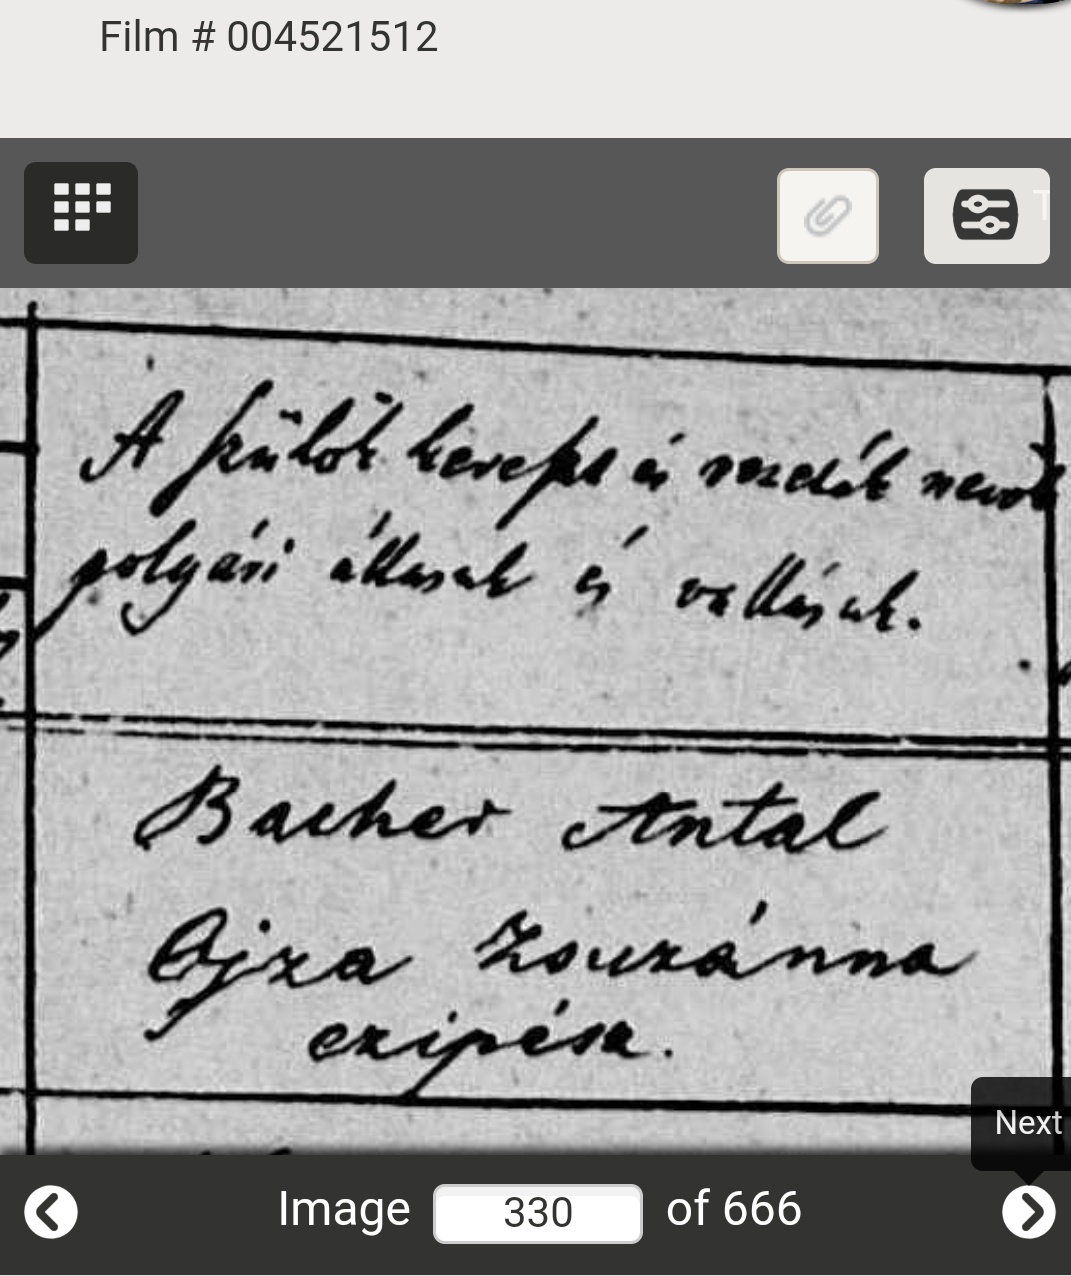 Film # 004521512
A szülők kereszt és vezeték nevök
polgári állásuk és vallásuk.
Bacher Antal
Ajza Zsuzánna
czipész.
Next
Image 330 of 666